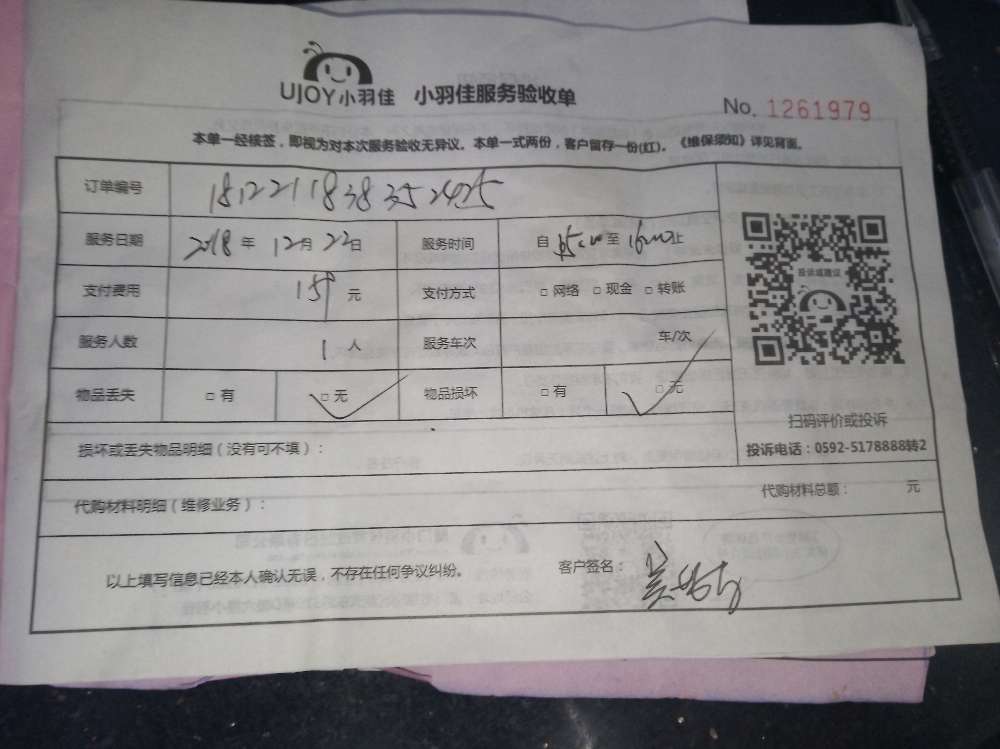 UJOY小羽佳 小羽佳服务验收单
No. 1261979
本单一经核签，即视为对本次服务验收无异议。本单一式两份，客户留存一份(红)。《维保须知》详见背面。
订单编号 1812211838352425
服务日期 2018年 12月 22日 服务时间 自 至 止
支付费用 元 支付方式 □ 网络 □ 现金 □ 转账
投诉或建议
服务人数 1 人 服务车次 车/次
物品丢失 □ 有 □ 无 物品损坏 □ 有 □ 无
扫码评价或投诉
投诉电话：0592-5178888转2
损坏或丢失物品明细（没有可不填）：
代购材料明细（维修业务）： 代购材料总额： 元
以上填写信息已经本人确认无误，不存在任何争议纠纷。 客户签名：